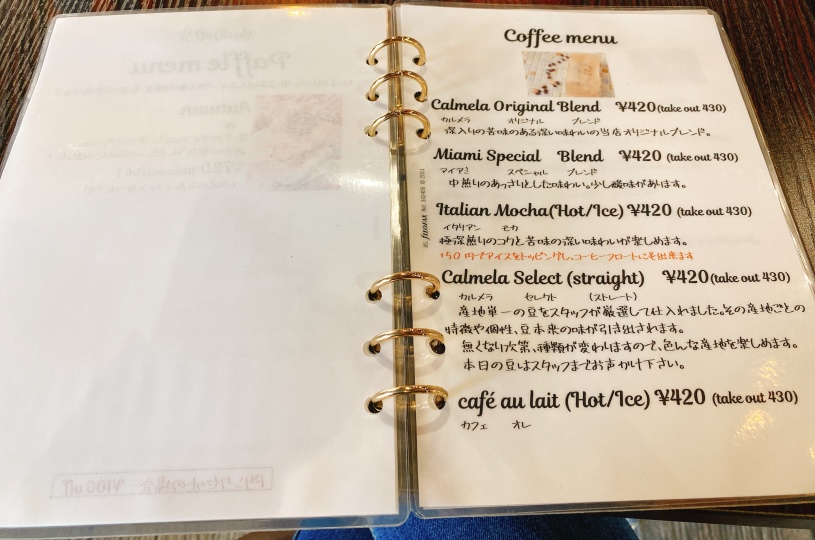 Coffee menu
Calmela Original Blend ¥420 (take out 430)
カルメラ オリジナル ブレンド
深入りの苦味のある深い味わいの当店オリジナルブレンド。
Miami Special Blend ¥420 (take out 430)
マイアミ スペシャル ブレンド
中煎りのあっさりとした味わい。少し酸味があります。
Italian Mocha(Hot/Ice) ¥420 (take out 430)
イタリアン モカ
極深煎りのコクと苦味の深い味わいが楽しめます。
+50円でアイスをトッピングし、コーヒーフロートにも出来ます
Calmela Select (straight) ¥420 (take out 430)
カルメラ セレクト (ストレート)
産地単一の豆をスタッフが厳選して仕入れました。その産地ごとの
特徴や個性、豆本来の味が引き出されます。
無くなり次第、種類が変わりますので、色んな産地を楽しめます。
本日の豆はスタッフまでお声がけ下さい。
café au lait (Hot/Ice) ¥420 (take out 430)
カフェ オレ